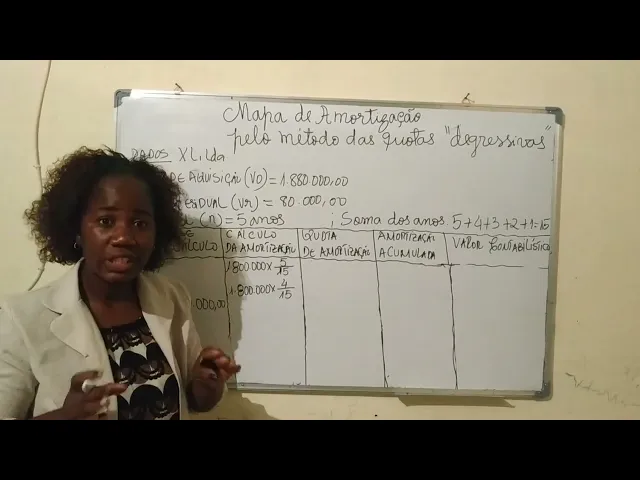 Mapa de Amortização
pelo método das quotas "degressivas"
DADOS XLi, lda
DE AQUISIÇÃO (VO) = 1.880.000,00
(Vr) = 80.000,00
(n) = 5 anos ; Soma dos anos. 5+4+3+2+1=15
CÁLCULO DA AMORTIZAÇÃO
QUOTA DE AMORTIZAÇÃO
AMORTIZAÇÃO ACUMULADA
VALOR CONTABILÍSTICO
1800.000 x 5/15
1.800.000 x 4/15